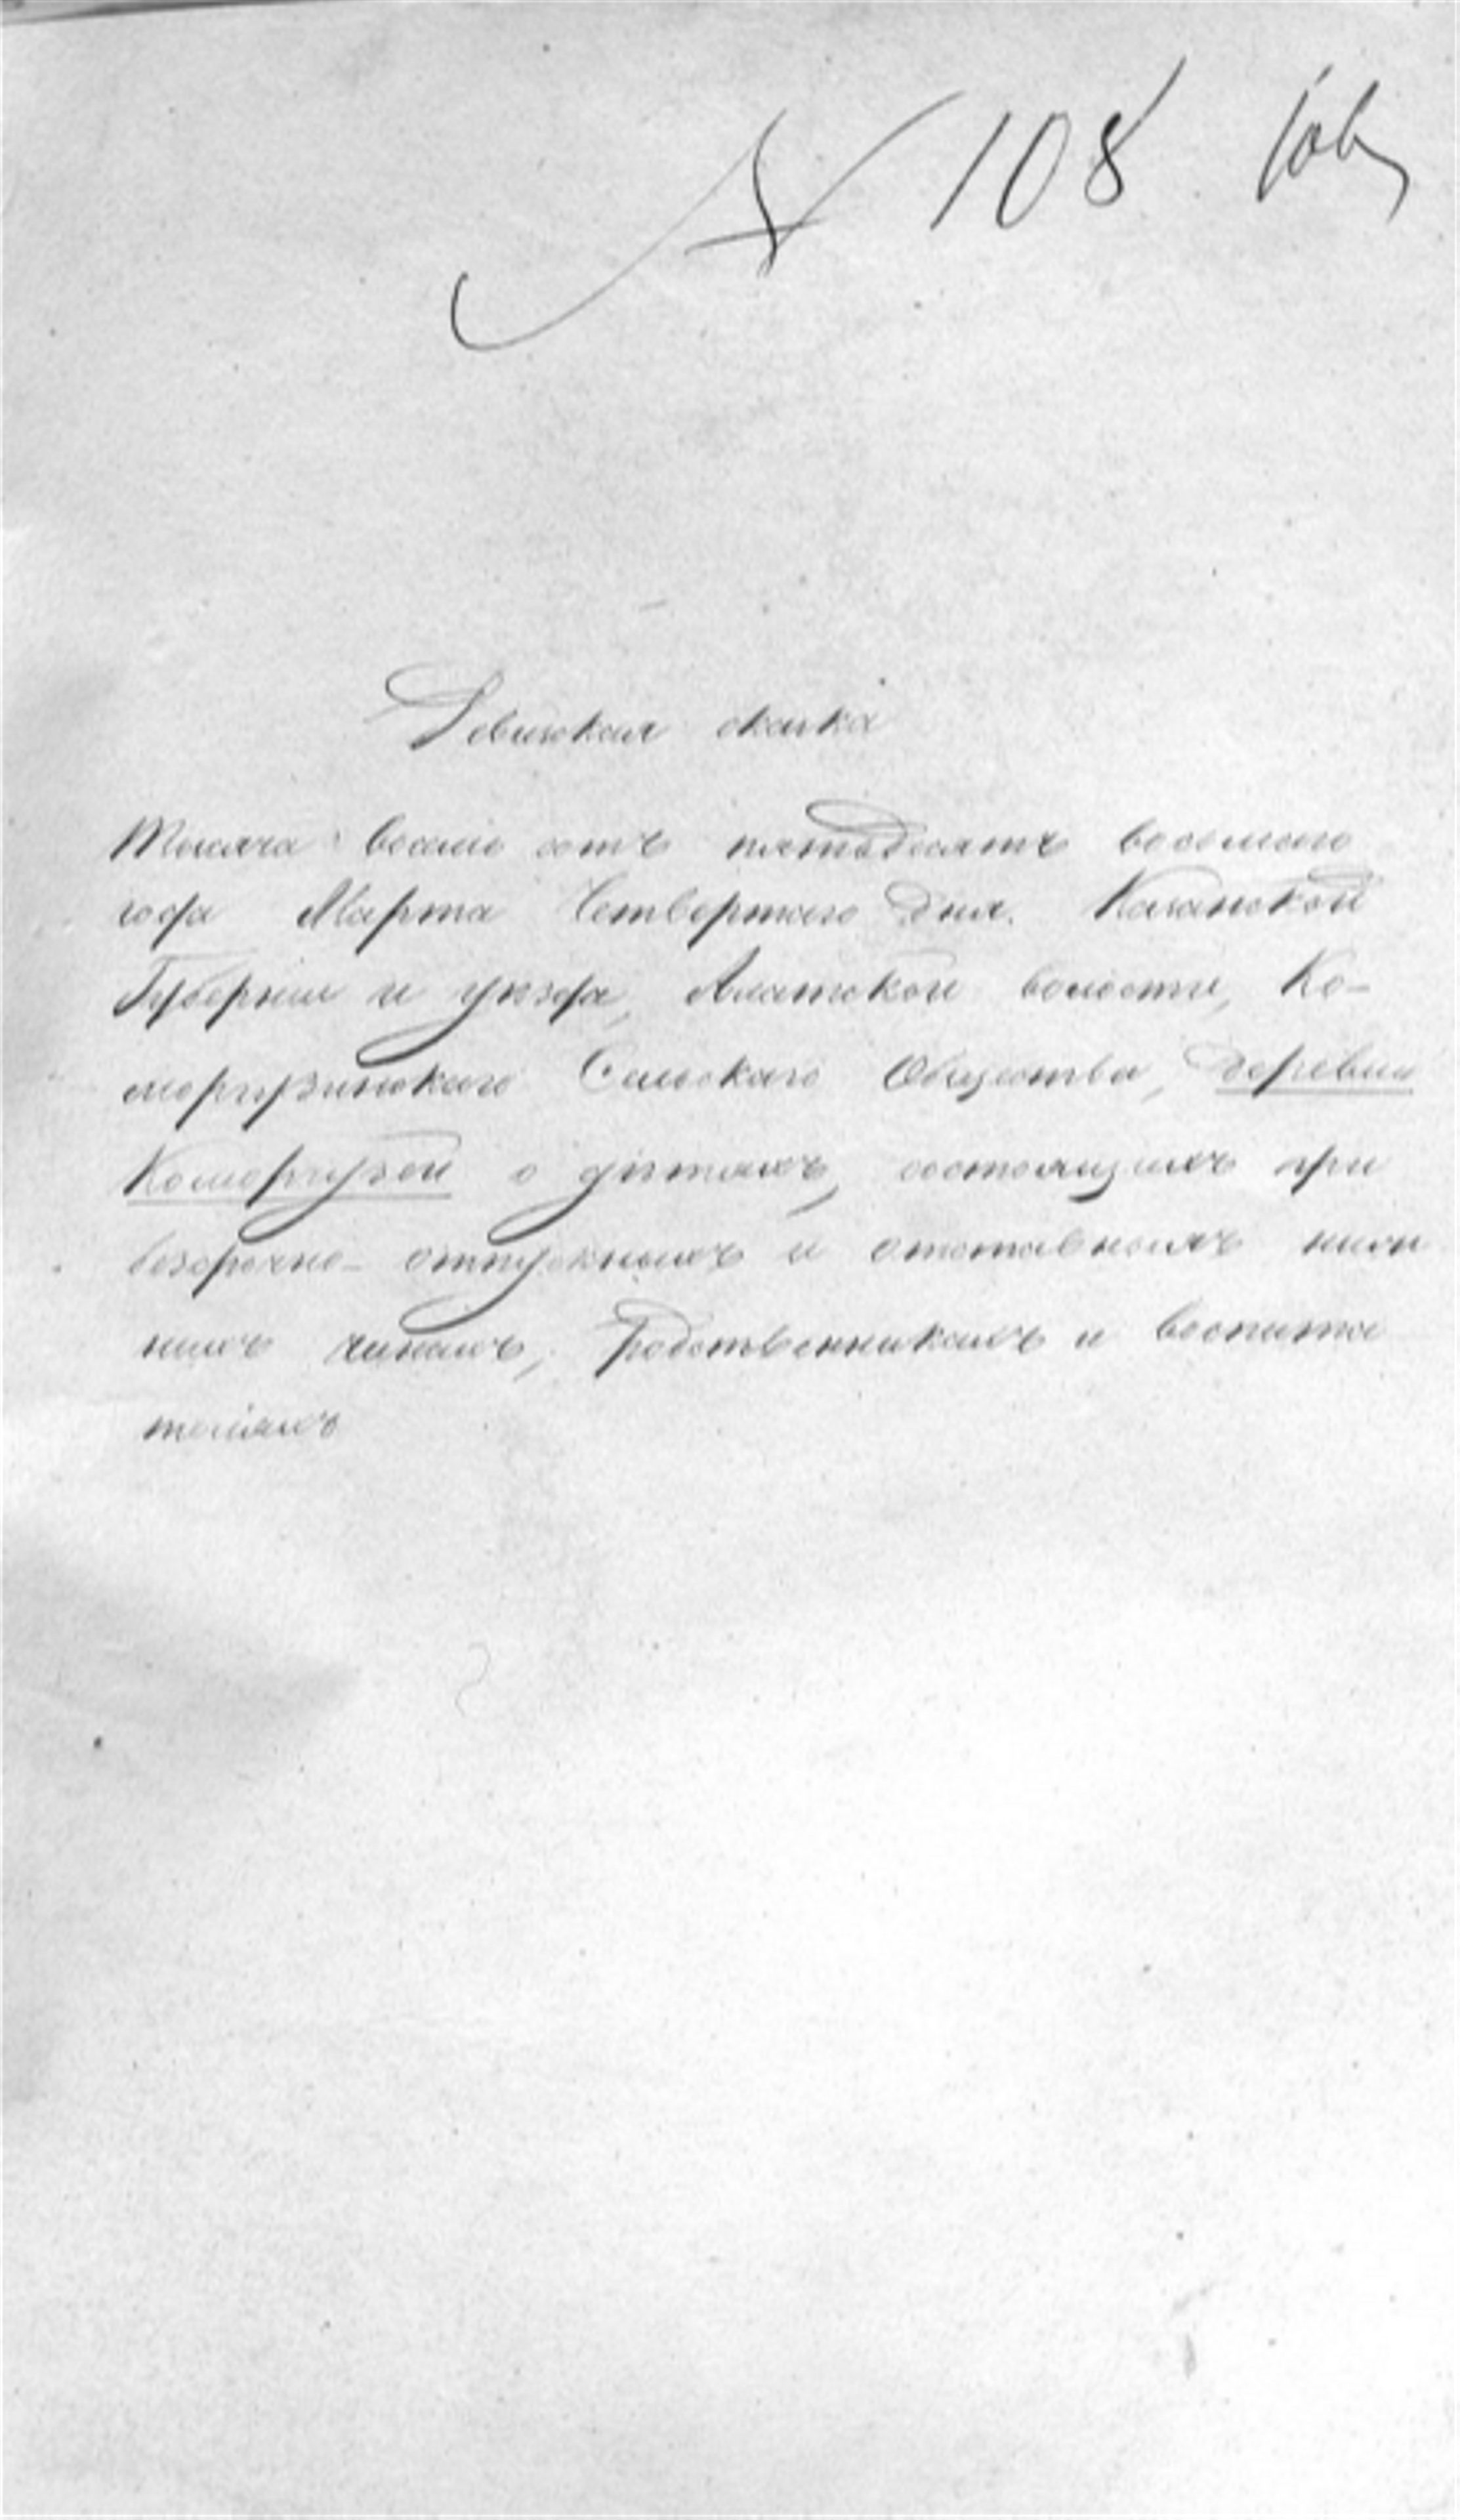 № 108
Ревизская сказка
Тысяча восемь сотъ пятьдесятъ восьмаго
года Марта Четвертаго дня. Казанской
Губерніи и уѣзда, Алатской волости, Ко-
моргузинскаго Сельскаго Общества, деревни
Коморгузей о дѣтяхъ, состоящихъ при
безсрочно-отпускныхъ и отставныхъ ниж
нихъ чинахъ, родственникахъ и воспита
теляхъ